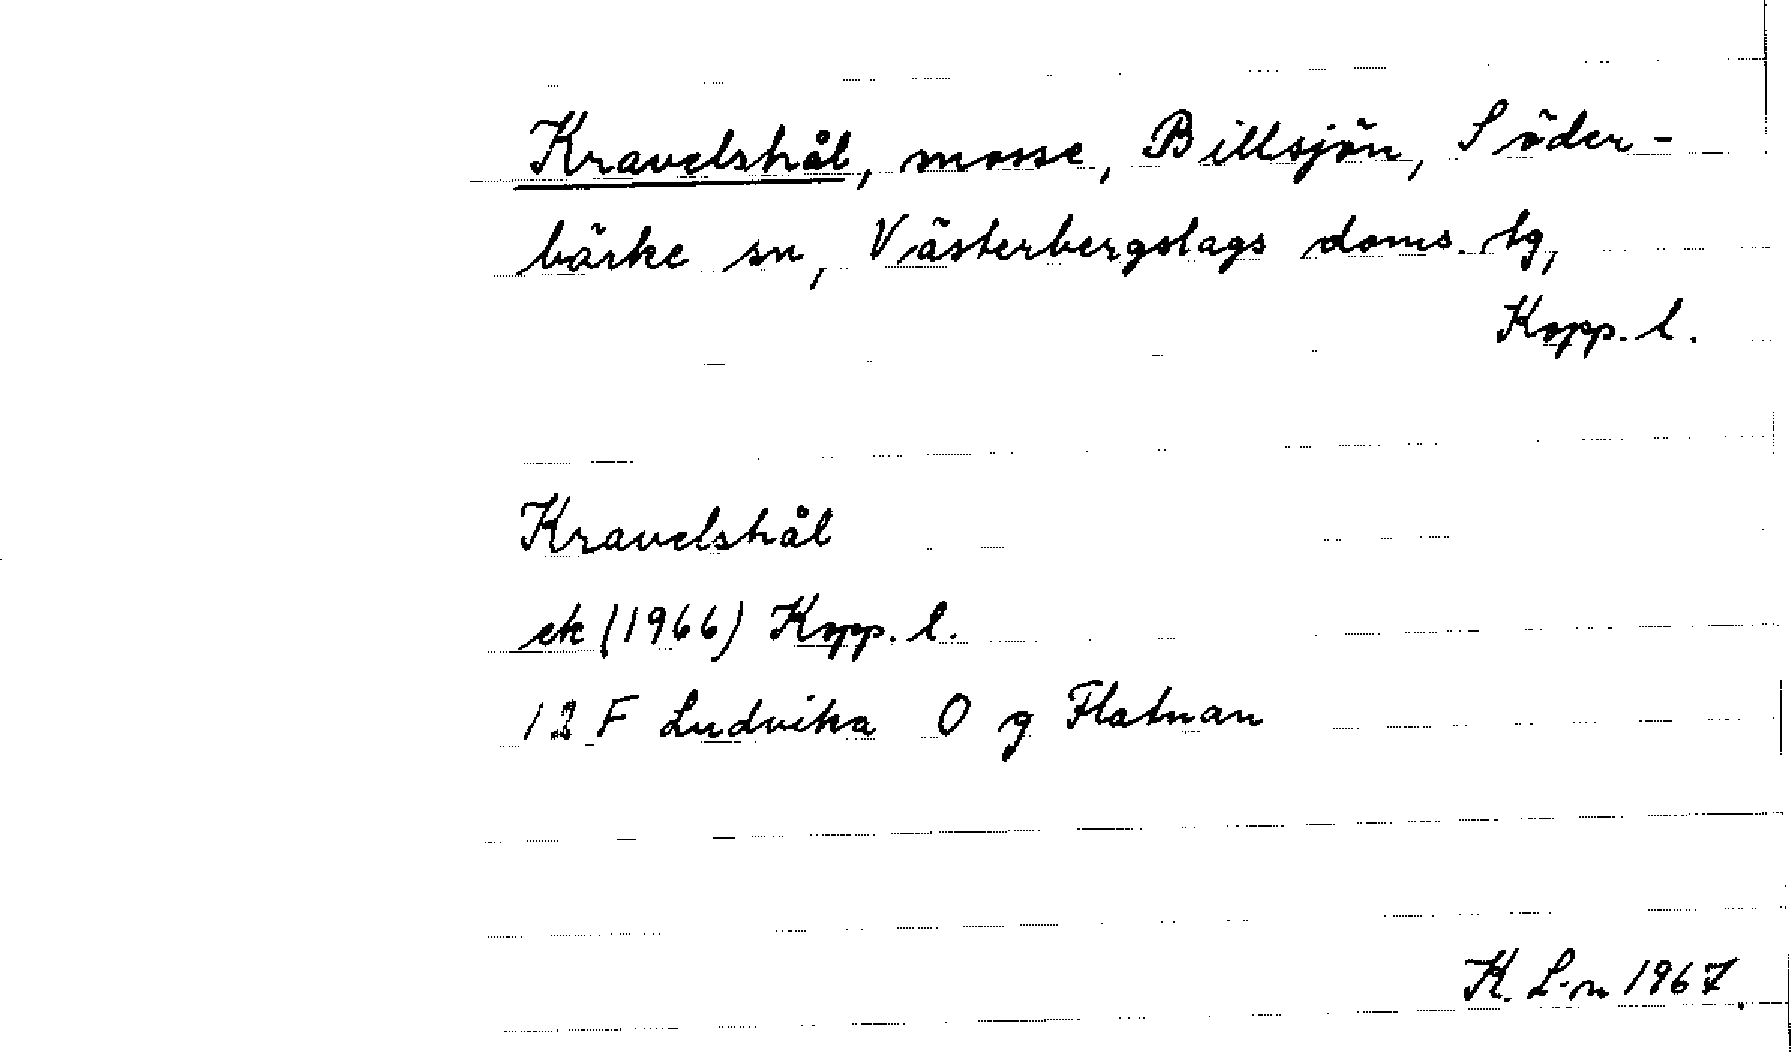 Kravelshål, mosse, Billsjön, Söder-
bärke sn, Västerbergslags doms. tg,
Kopp. l.
Kravelshål
ek (1966) Kopp. l.
12 F Ludvika O g Flatnan
K. L-n 1967.